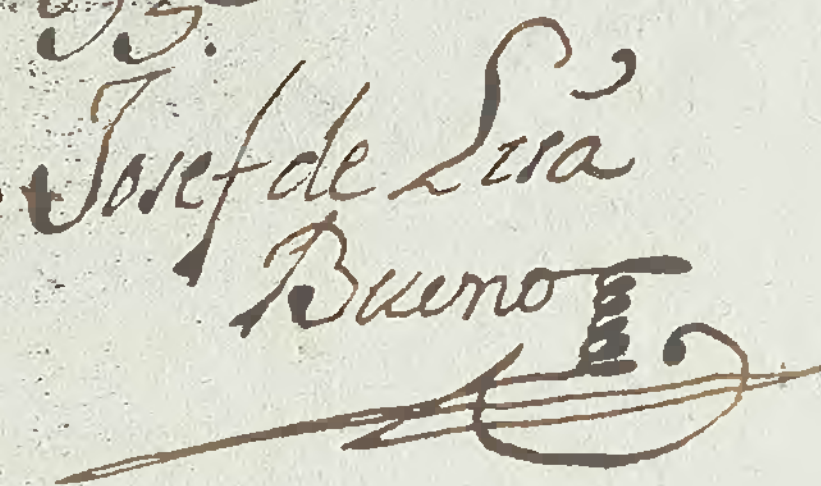 Josef de Lisa
Bueno